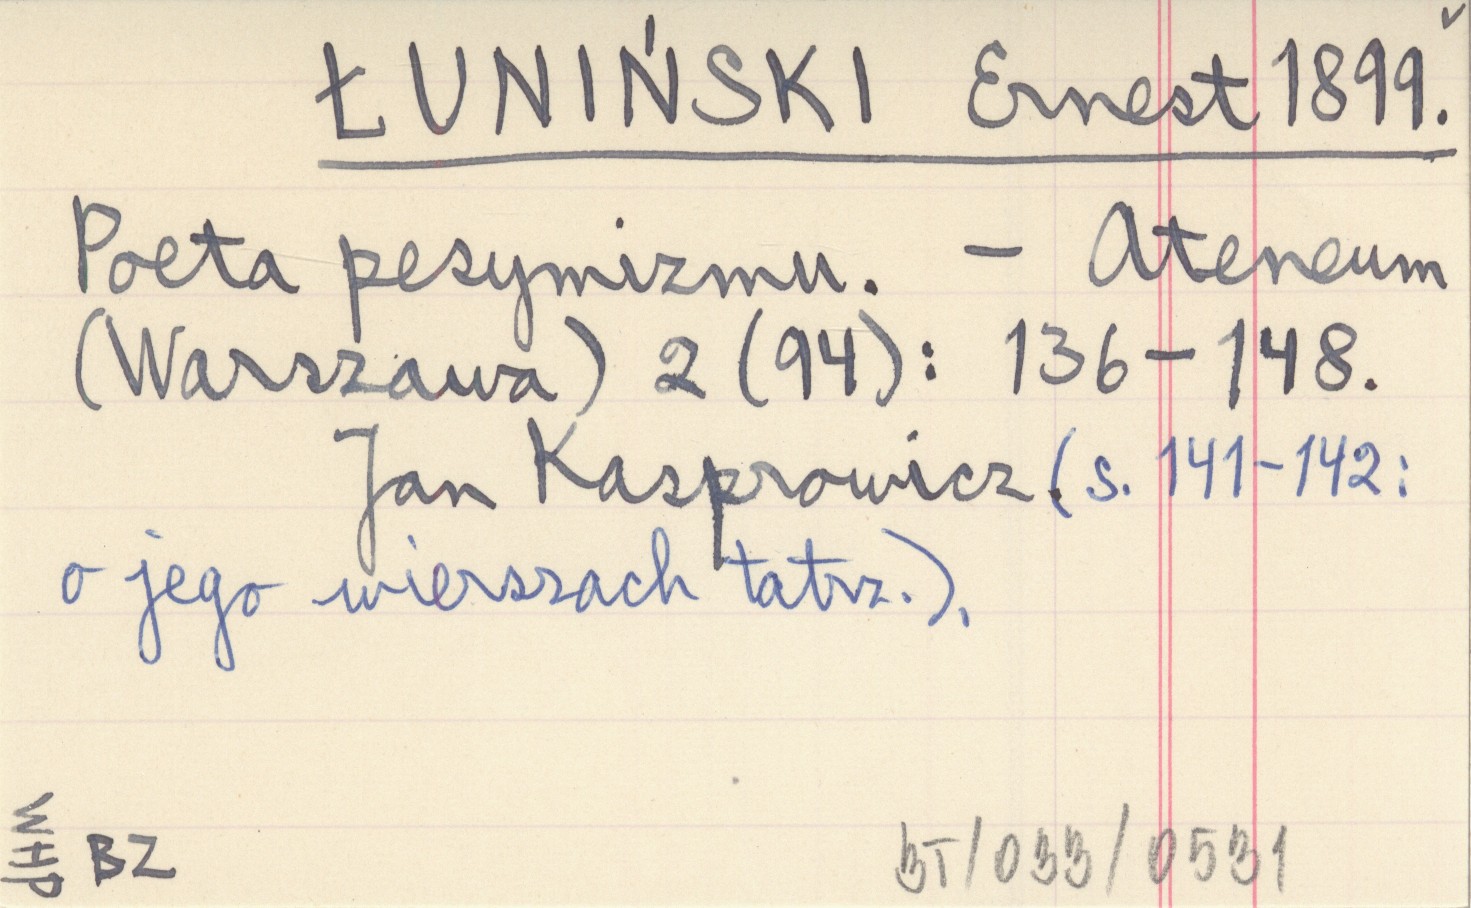 ŁUNIŃSKI Ernest 1899.
Poeta pesymizmu. – Ateneum
(Warszawa) 2 (94): 136–148.
Jan Kasprowicz (s. 141–142:
o jego wierszach tatrz.).
WHP
BZ
BT/033/0531